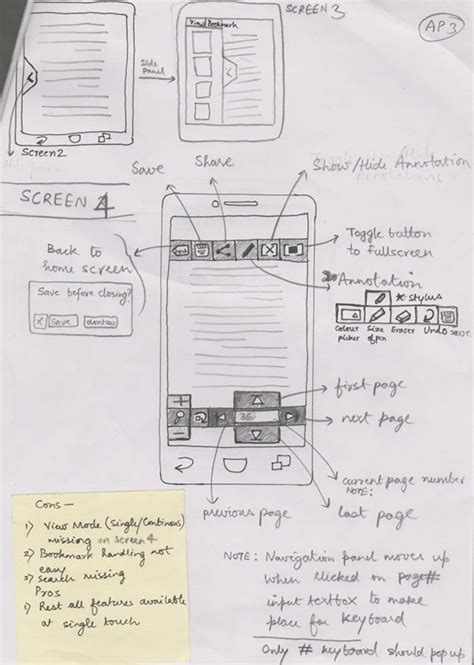 SCREEN 3
AP3
View Bookmark
Side
Panel
Screen2
Save
Share
Show/Hide Annotation
SCREEN 4
Toggle button
to fullscreen
Back to
home screen
Save before closing?
X
Save
Annotation
* stylus
Colour
picker
Size
of pen
Eraser
Undo
save
first page
36
next page
current page number
NOTE:
previous page
last page
Cons -
1) View Mode (Single/Continous)
missing on Screen 4
2) Bookmark Handling not
easy
3) Search missing
Pros
1) Rest all features available
at single touch
NOTE: Navigation panel moves up
when clicked on page#
input textbox to make
place for keyboard
Only # keyboard should pop up